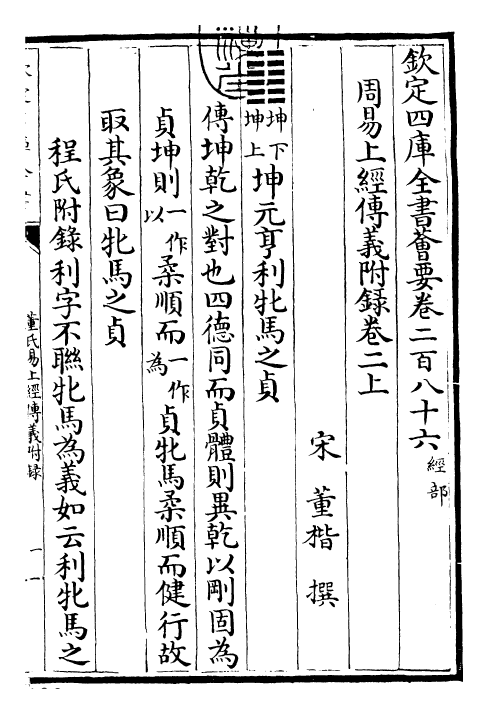 欽定四庫全書薈要卷二百八十六 經部
周易上經傳義附録卷二上
宋 董楷 撰
坤下
坤上
坤元亨利牝馬之貞
傳坤乾之對也四德同而貞體則異乾以剛固為
貞坤則一作以柔順而一作為貞牝馬柔順而健行故
取其象曰牝馬之貞
程氏附錄利字不聯牝馬為義如云利牝馬之
董氏易上經傳義附録
一